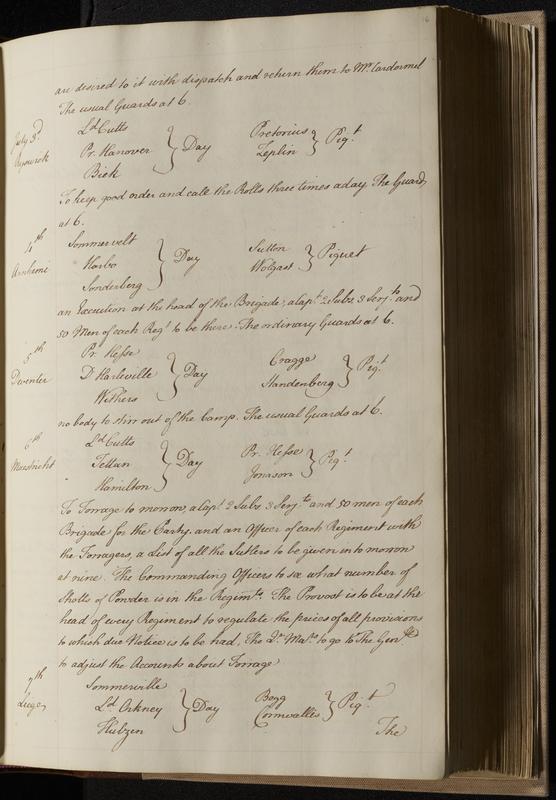 16
are desired to it with dispatch and return them to Mr. Cardonnel
The usual Guards at 6.
July 3d
Ld Cutts
Pr. Hanover } Day
Pretorius
Zeplin } Piqt
To keep good order and call the Rolls three times a day. The Guard
at 6.
4th
Arnheim
Sommervelt
Harbo } Day
Sonderberg
Sutton
Wolgast } Piquet
an Execution at the head of the Brigade, a Capt 2 Subs. 3 Serjts and
50 Men of each Regt to be there. The ordinary Guards at 6.
5th
Deventer
Pr. Hesse
D'Harleville } Day
Withers
Cragge
Handenberg } Piqt
no body to stirr out of the Camp. The usual Guards at 6.
6th
Maestricht
Ld Cutts
Tettau } Day
Hamilton
Pr. Hesse
Jonrson } Piqt
To Forrage to morrow, a Capt 2 Subs 3 Serjts and 50 men of each
Brigade for the Party, and an Officer of each Regiment with
the Forragers, a List of all the Sutlers to be given in to morrow
at nine. The Commanding Officers to see what number of
Shotts of Powder is in the Regimts. The Provost is to be at the
head of every Regiment to regulate the prices of all provisions
to which due Notice is to be had. The Qr. Mars. to go to The Genlls
to adjust the Accounts about Forrage
7th
Liege
Sommerville
Ld. Orkney } Day
Hulzen
Begg
Cornwallis } Piqt
The